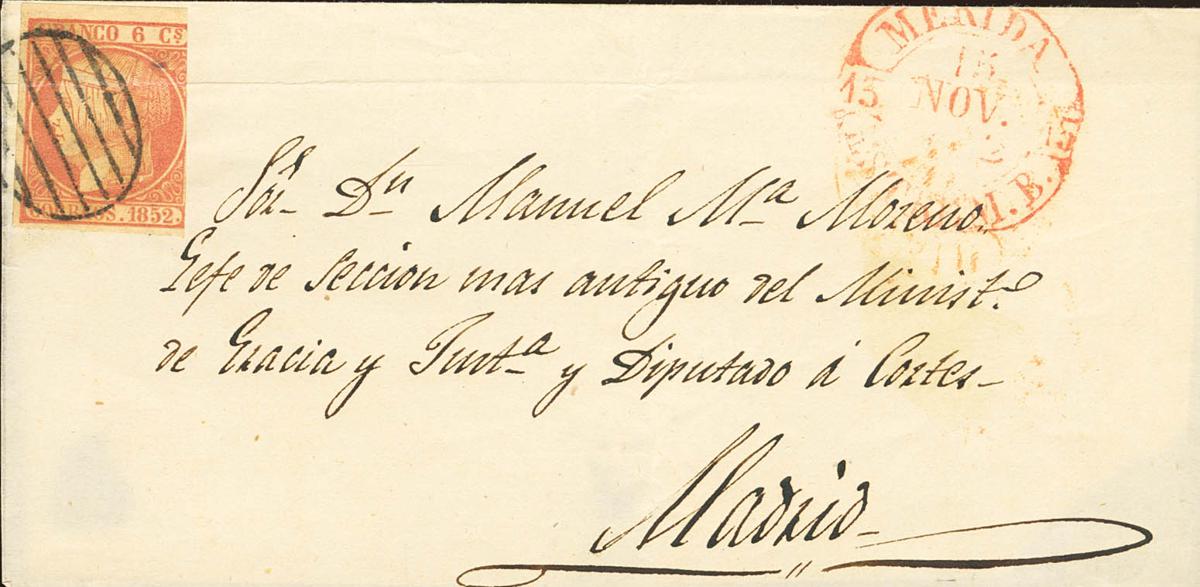 FRANCO 6 Cs
CORREOS. 1852.
MERIDA
15
NOV.
15
EXTREM. B.
Sor. Dn Manuel Ma. Moreno.
Gefe de Seccion mas antiguo del Ministo.
de Gracia y Justa. y Diputado á Cortes
Madrid